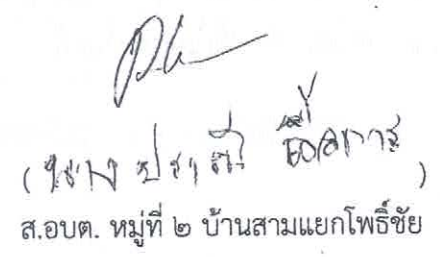 (นางปราณี
)
ส.อบต. หมู่ที่ ๒ บ้านสามแยกโพธิ์ชัย